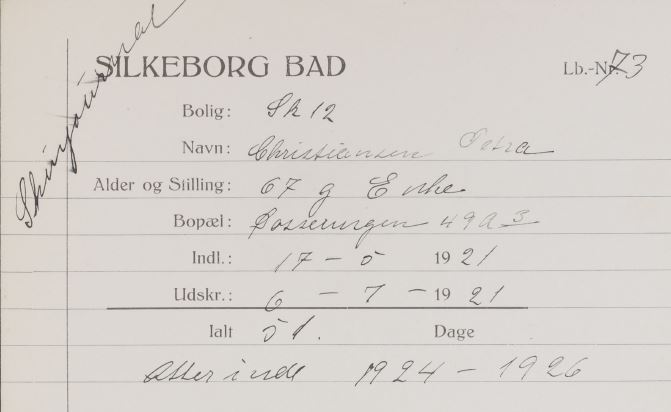 Skinjournal
SILKEBORG BAD
Lb.-Nr. 73
Bolig: Sk 12
Navn: Christiansen Petra
Alder og Stilling: 67 g Enke
Bopæl: Dosseringen 49A 3
Indl.: 17 - 5 1921
Udskr.: 6 - 7 - 1921
Ialt 51. Dage
Atter inde 1924 - 1926